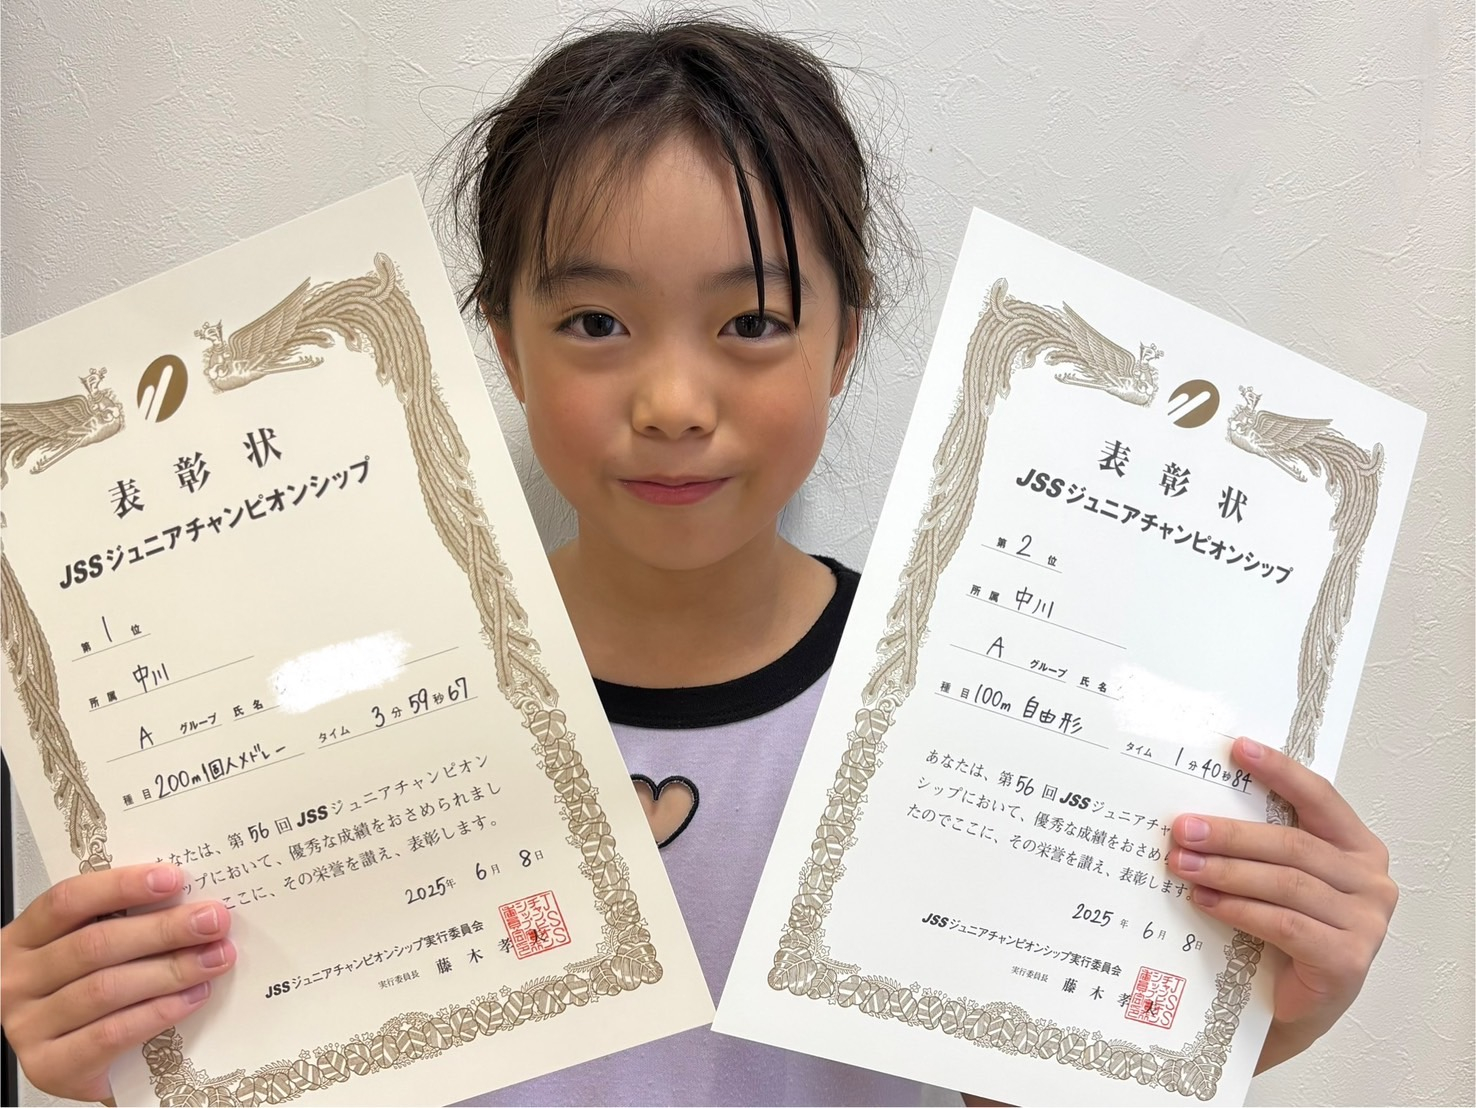 表彰状
JSSジュニアチャンピオンシップ
第1位
所属 中川
Aグループ 氏名
種目 200m個人メドレー タイム 3分59秒67
あなたは、第56回JSSジュニアチャンピオン
シップにおいて、優秀な成績をおさめられまし
ここに、その栄誉を讃え、表彰します。
2025年 6月 8日
JSSジュニアチャンピオンシップ実行委員会
実行委員長 藤木孝夫
表彰状
JSSジュニアチャンピオンシップ
第2位
所属 中川
Aグループ 氏名
種目 100m 自由形 タイム 1分40秒84
あなたは、第56回JSSジュニアチャ
シップにおいて、優秀な成績をおさめら
たのでここに、その栄誉を讃え、表彰します。
2025年 6月 8日
JSSジュニアチャンピオンシップ実行委員会
実行委員長 藤木孝夫